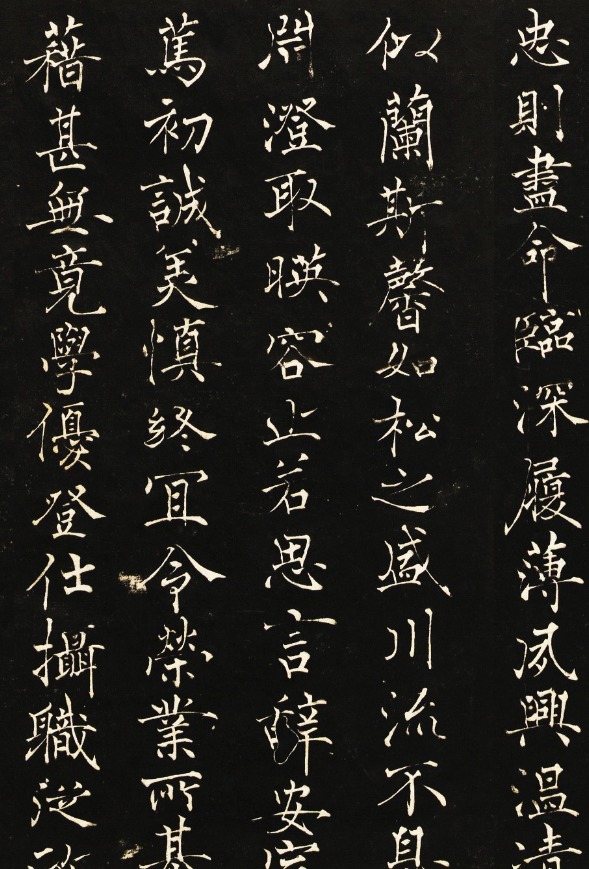 忠則盡命臨深履薄夙興温凊
似蘭斯馨如松之盛川流不息
淵澄取暎容止若思言辭安定
篤初誠美慎終宜令榮業所基
藉甚無竟學優登仕攝職從政